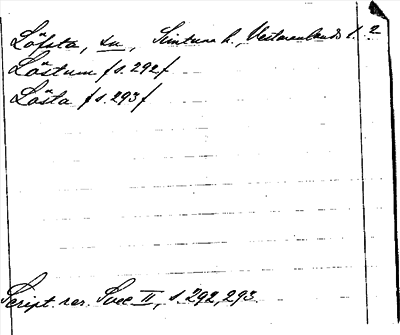 Löfsta, sn, Simtuna h., Vestmanlands l. 2
Löstum f s. 292 f
Lösta f s. 293 f
Script. rer. Svec II, s. 292, 293.